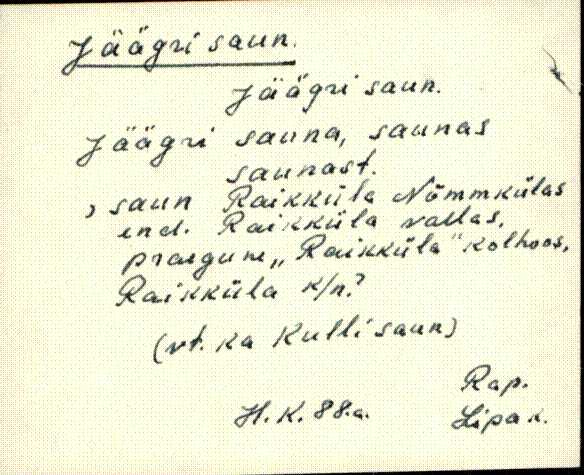 Jäägri saun.
Jäägri saun.
Jäägri sauna, saunas
saunast.
, saun Raikküla Nõmmkülas
end. Raikküla vallas,
praegune „Raikküla" kolhoos,
Raikküla k/n.?
(vt. ka Kulli saun)
Rap.
H. K. 88.a.
Lipa k.